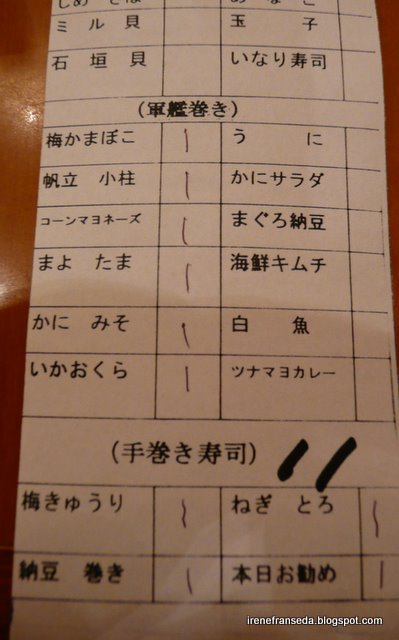 しめさば あなご
ミル貝 玉子
石垣貝 いなり寿司
(軍艦巻き)
梅かまぼこ うに
帆立 小柱 かにサラダ
コーンマヨネーズ まぐろ納豆
まよ たま 海鮮キムチ
かに みそ 白魚
いかおくら ツナマヨカレー
(手巻き寿司)
梅きゅうり ねぎ とろ
納豆 巻き 本日お勧め
irenefranseda.blogspot.com